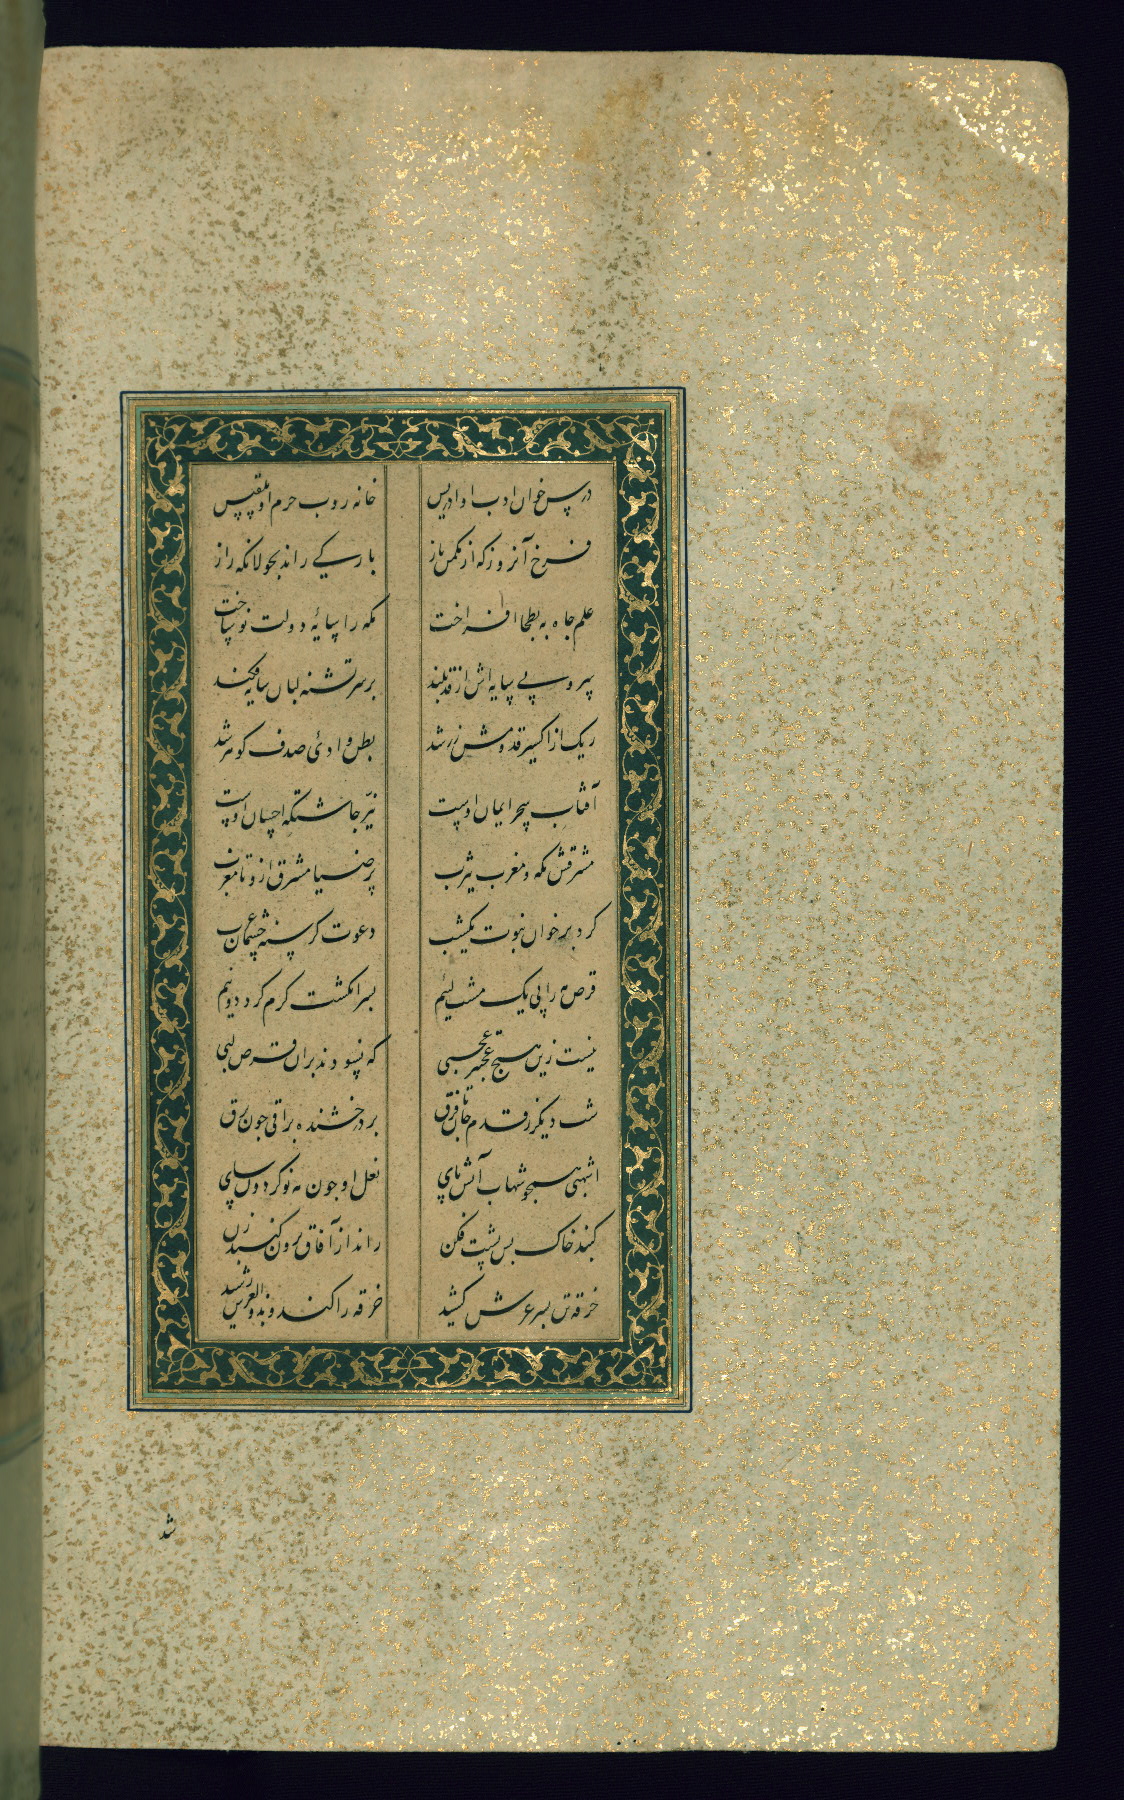 درس خوان ادب او ادریس خانه روب حرم او بلقیس
فرخ آنروز که از مکمن باز بارکی راند بجولانکه راز
علم جاه به بطحا افراخت مکه را پایهٔ دولت نو ساخت
سرو بی سایه اش از قد بلند بر سر تشنه لبان سایه فکند
ریک از اکسیر قدومش زر شد بطن وادی صدف کوهر شد
آفتاب سحر ایمان اوست نیر چاشتکه احسان اوست
مشرقش مکه و مغرب یثرب پر ضیا مشرق ازو تا مغرب
کرد بر خوان نبوت یکشب دعوت کرسنه چشمان عرب
قرص مه را پی یک مشت لئیم بسر انکشت کرم کرد دو نیم
نیست زین هیچ عجبتر عجبی که نسودند بران قرص لبی
شب دیکر ز قدم تا فرق بر درخشنده براقی چون برق
اشهبی همچو شهاب آتش پای نعل او چون مه نو کردون سای
کنبد خاک پس پشت فکن راند از آفاق برون کنبد زن
خرقه تن بسر عرش کشید خرقه را کند و بذو العرش رسید
شد